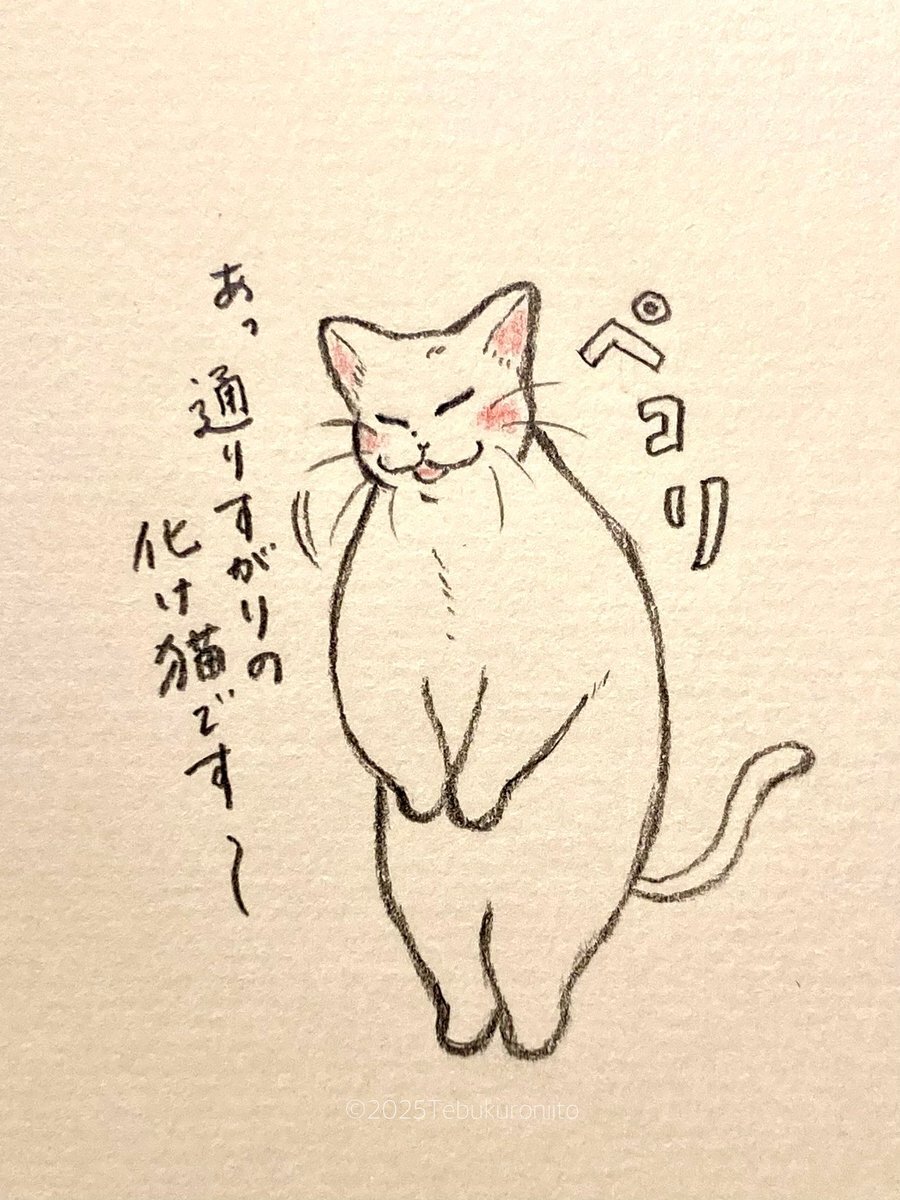 ペコリ
あっ通りすがりの
化け猫です〜
©2025Tebukuroniito